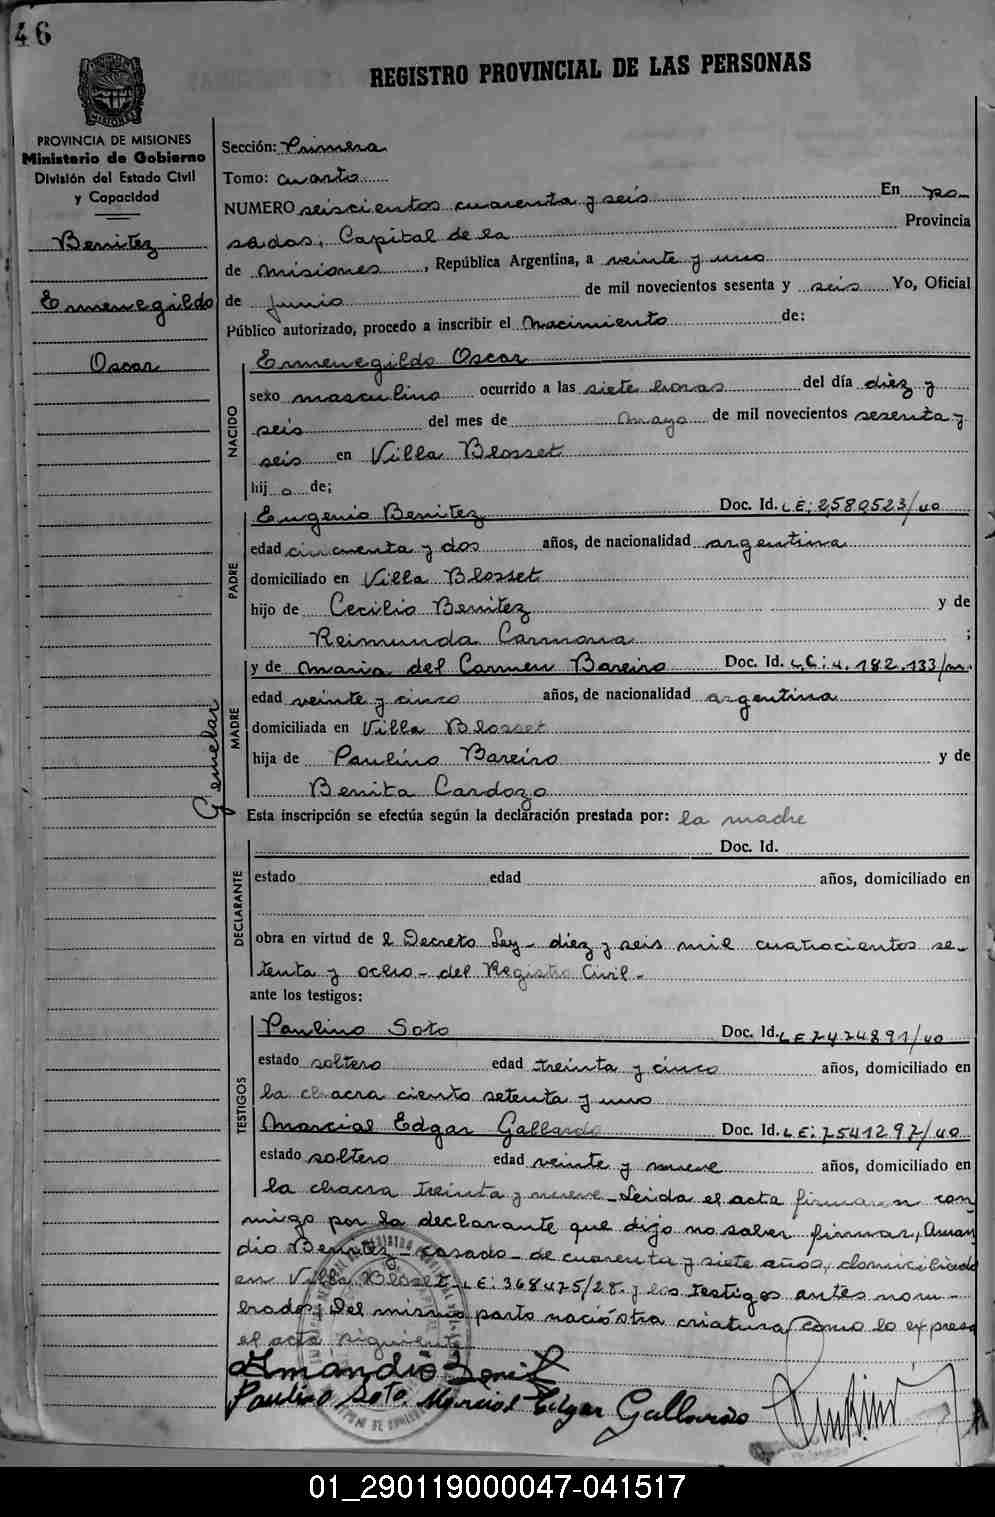 46
REGISTRO PROVINCIAL DE LAS PERSONAS
PROVINCIA DE MISIONES
Ministerio de Gobierno
División del Estado Civil
y Capacidad
Benitez
Ermenegildo
Oscar
Gemelar
Sección: Primera
Tomo: cuarto
NUMERO seiscientos cuarenta y seis En Po-
sadas, Capital de la Provincia
de Misiones, República Argentina, a veinte y uno
de junio de mil novecientos sesenta y seis Yo, Oficial
Público autorizado, procedo a inscribir el Nacimiento de:
NACIDO
Ermenegildo Oscar
sexo masculino ocurrido a las siete horas del día diez y
seis del mes de Mayo de mil novecientos sesenta y
seis en Villa Blosset
hij o de;
PADRE
Eugenio Benitez Doc. Id. LE: 2,580523/40
edad cincuenta y dos años, de nacionalidad argentina
domiciliado en Villa Blosset
hijo de Cecilio Benitez y de
Reimunda Carmona ;
MADRE
y de Maria del Carmen Bareiro Doc. Id. L.C: 4.182.133/m.
edad veinte y cinco años, de nacionalidad argentina
domiciliada en Villa Blosset
hija de Paulino Bareiro y de
Benita Cardozo
Esta inscripción se efectúa según la declaración prestada por: la madre
DECLARANTE
Doc. Id.
estado edad años, domiciliado en
obra en virtud de l Decreto Ley - diez y seis mil cuatrocientos se-
tenta y ocho - del Registro Civil -
ante los testigos:
TESTIGOS
Paulino Soto Doc. Id. LE 7424891/40
estado soltero edad treinta y cinco años, domiciliado en
la chacra ciento setenta y uno
Marcial Edgar Gallardo Doc. Id. LE: 7541297/40
estado soltero edad veinte y nueve años, domiciliado en
la chacra treinta y nueve - Leida el acta firmaron con-
migo por la declarante que dijo no saber firmar, Aman
dio Benitez - casado - de cuarenta y siete años, domiciliado
en Villa Blosset - LE: 368475/28. y los testigos antes nom-
brados; Del mismo parto nació otra criatura como lo expresa
el acta siguiente
Amandio Benit
Paulino Soto Marcial Edgar Gallardo
01_290119000047-041517